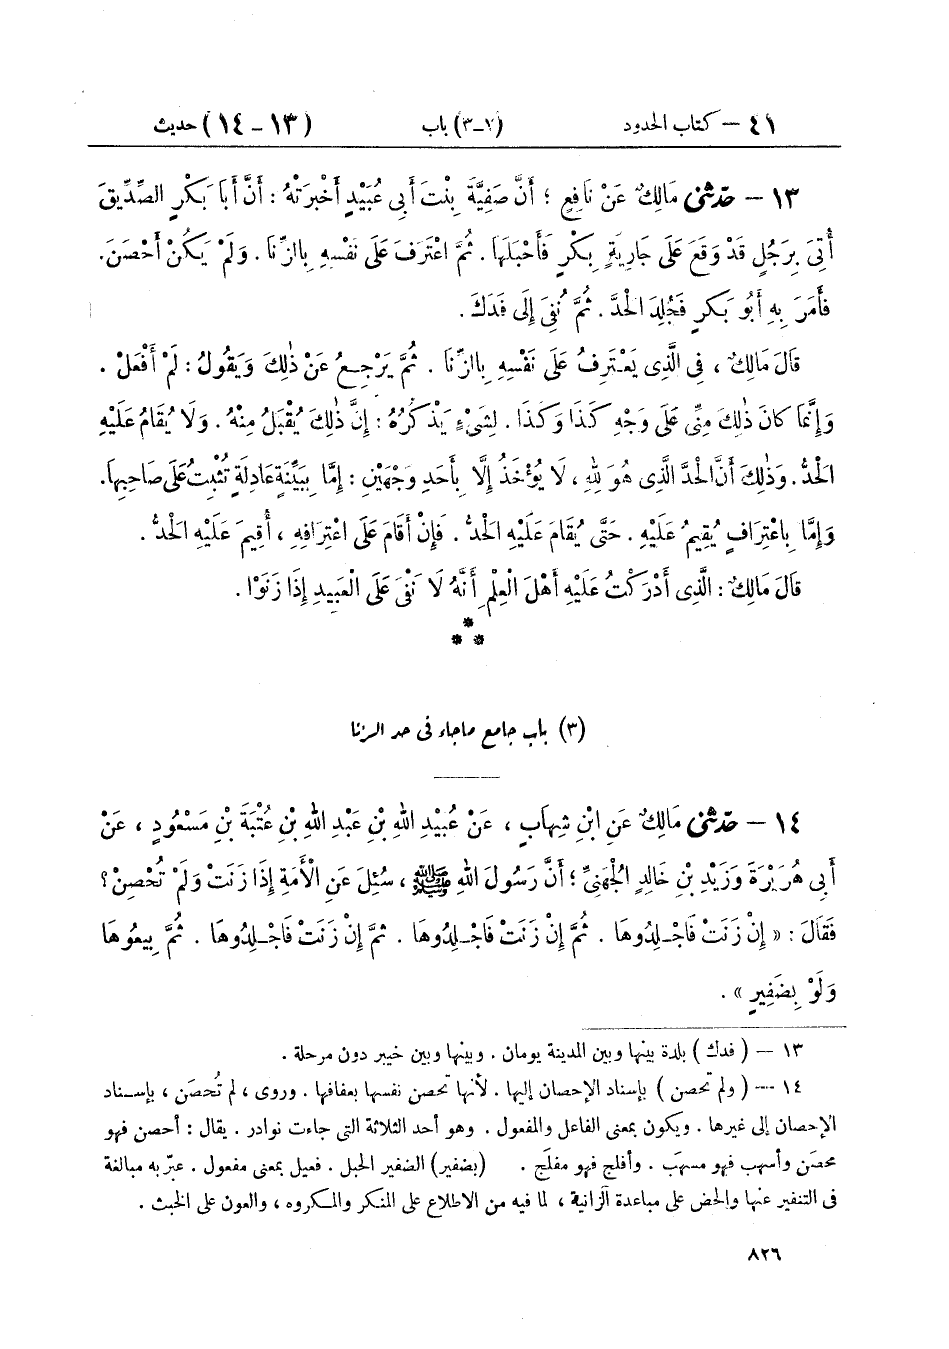 ٤١ – كتاب الحدود (٢-٣) باب (١٣-١٤) حديث
١٣ – حَدَّثَنِي مَالِكٌ عَنْ نَافِعٍ ؛ أَنَّ صَفِيَّةَ بِنْتَ أَبِي عُبَيْدٍ أَخْبَرَتْهُ : أَنَّ أَبَا بَكْرٍ الصِّدِّيقَ
أُتِيَ بِرَجُلٍ قَدْ وَقَعَ عَلَى جَارِيَةٍ بِكْرٍ فَأَحْبَلَهَا . ثُمَّ اعْتَرَفَ عَلَى نَفْسِهِ بِالزِّنَا . وَلَمْ يَكُنْ أَحْصَنَ .
فَأَمَرَ بِهِ أَبُو بَكْرٍ فَجُلِدَ الْحَدَّ . ثُمَّ نُفِيَ إِلَى فَدَكَ .
قَالَ مَالِكٌ ، فِي الَّذِي يَعْتَرِفُ عَلَى نَفْسِهِ بِالزِّنَا . ثُمَّ يَرْجِعُ عَنْ ذٰلِكَ وَيَقُولُ : لَمْ أَفْعَلْ .
وَإِنَّمَا كَانَ ذٰلِكَ مِنِّي عَلَى وَجْهِ كَذَا وَكَذَا . لِشَيْءٍ يَذْكُرُهُ : إِنَّ ذٰلِكَ يُقْبَلُ مِنْهُ . وَلَا يُقَامُ عَلَيْهِ
الْحَدُّ . وَذٰلِكَ أَنَّ الْحَدَّ الَّذِي هُوَ لِلهِ ، لَا يُؤْخَذُ إِلَّا بِأَحَدِ وَجْهَيْنِ : إِمَّا بِبَيِّنَةٍ عَادِلَةٍ تُثْبِتُ عَلَى صَاحِبِهَا .
وَإِمَّا بِاعْتِرَافٍ يُقِيمُ عَلَيْهِ . حَتَّى يُقَامَ عَلَيْهِ الْحَدُّ . فَإِنْ أَقَامَ عَلَى اعْتِرَافِهِ ، أُقِيمَ عَلَيْهِ الْحَدُّ .
قَالَ مَالِكٌ : الَّذِي أَدْرَكْتُ عَلَيْهِ أَهْلَ الْعِلْمِ أَنَّهُ لَا نَفْيَ عَلَى الْعَبِيدِ إِذَا زَنَوْا .
*
* *
(٣) باب جامع ماجاء فى حد الزنا
١٤ – حَدَّثَنِي مَالِكٌ عَنِ ابْنِ شِهَابٍ ، عَنْ عُبَيْدِ اللهِ بْنِ عَبْدِ اللهِ بْنِ عُتْبَةَ بْنِ مَسْعُودٍ ، عَنْ
أَبِي هُرَيْرَةَ وَزَيْدِ بْنِ خَالِدٍ الْجُهَنِيِّ ؛ أَنَّ رَسُولَ اللهِ ﷺ ، سُئِلَ عَنِ الْأَمَةِ إِذَا زَنَتْ وَلَمْ تُحْصِنْ ؟
فَقَالَ : « إِنْ زَنَتْ فَاجْلِدُوهَا . ثُمَّ إِنْ زَنَتْ فَاجْلِدُوهَا . ثُمَّ إِنْ زَنَتْ فَاجْلِدُوهَا . ثُمَّ بِيعُوهَا
وَلَوْ بِضَفِيرٍ » .
١٣ – ( فدك ) بلدة بينها وبين المدينة يومان . وبينها وبين خيبر دون مرحلة .
١٤ – ( ولم تحصن ) بإسناد الإحصان إليها . لأنها تحصن نفسها بعفافها . وروى ، لم تُحصَن ، بإسناد
الإحصان إلى غيرها . ويكون بمعنى الفاعل والمفعول . وهو أحد الثلاثة التى جاءت نوادر . يقال : أحصن فهو
محصَن وأسهب فهو مسهَب . وأفلج فهو مفلَج . (بضفير) الضفير الحبل . فعيل بمعنى مفعول . عبّر به مبالغة
فى التنفير عنها والحض على مباعدة الزانية ، لما فيه من الاطلاع على المنكر والمكروه ، والعون على الخبث .
٨٢٦